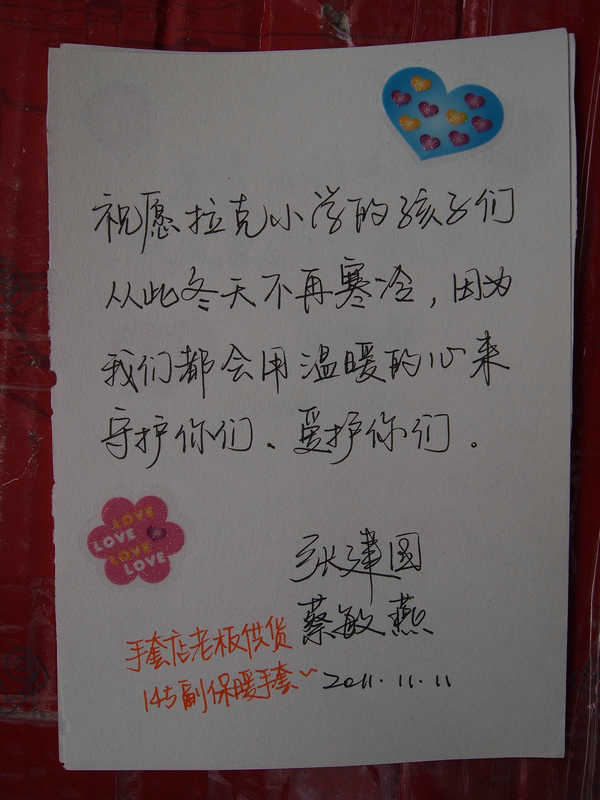 祝愿拉克小学的孩子们
从此冬天不再寒冷，因为
我们都会用温暖的心来
守护你们、爱护你们。
LOVE
LOVE
LOVE
LOVE
张建国
蔡敏燕
2011.11.11
手套店老板供货
145副保暖手套~